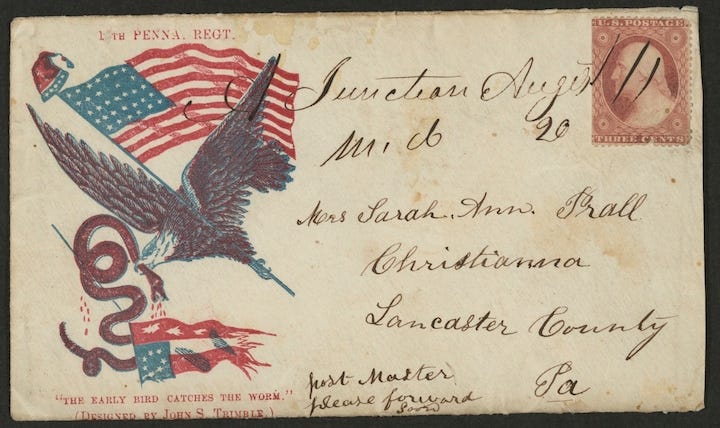 TH PENNA. REGT.
U.S. POSTAGE
THREE CENTS
A Junction August
M.d 20
Mrs Sarah. Ann. Prall
Christianna
Lancaster County
Pa
post Master
please forward
Soon
"THE EARLY BIRD CATCHES THE WORM."
(DESIGNED BY JOHN S. TRIMBLE.)